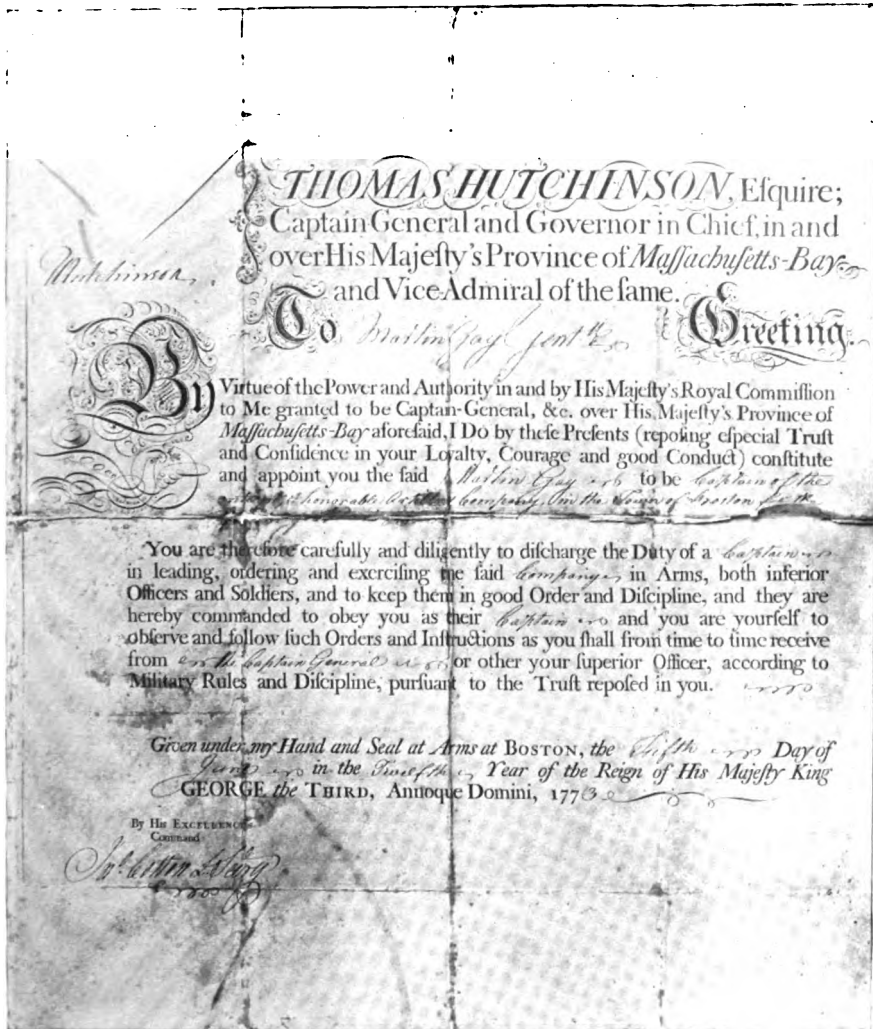 THOMAS HUTCHINSON, Eſquire;
Captain General and Governor in Chief, in and
over His Majeſty's Province of Maſſachuſetts-Bay
Hutchinson,
and Vice-Admiral of the ſame.
To Martin Gay Gentⁿ Greeting.
By Virtue of the Power and Authority in and by His Majeſty's Royal Commiſſion
to Me granted to be Captain-General, &c. over His Majeſty's Province of
Maſſachuſetts-Bay aforeſaid, I Do by theſe Preſents (repoſing eſpecial Truſt
and Confidence in your Loyalty, Courage and good Conduct) conſtitute
and appoint you the ſaid Martin Gay to be Captain of the
honorable Company in the Town of Boston
You are therefore carefully and diligently to diſcharge the Duty of a Captain
in leading, ordering and exerciſing the ſaid Company in Arms, both inferior
Officers and Soldiers, and to keep them in good Order and Diſcipline, and they are
hereby commanded to obey you as their Captain and you are yourſelf to
obſerve and follow ſuch Orders and Inſtructions as you ſhall from time to time receive
from the Captain General or other your ſuperior Officer, according to
Military Rules and Diſcipline, purſuant to the Truſt repoſed in you.
Given under my Hand and Seal at Arms at BOSTON, the Fifth Day of
June in the Twelfth Year of the Reign of His Majeſty King
GEORGE the THIRD, Annoque Domini, 1773
By His EXCELLENCY'S
Command
Jnº Cotton D Secry